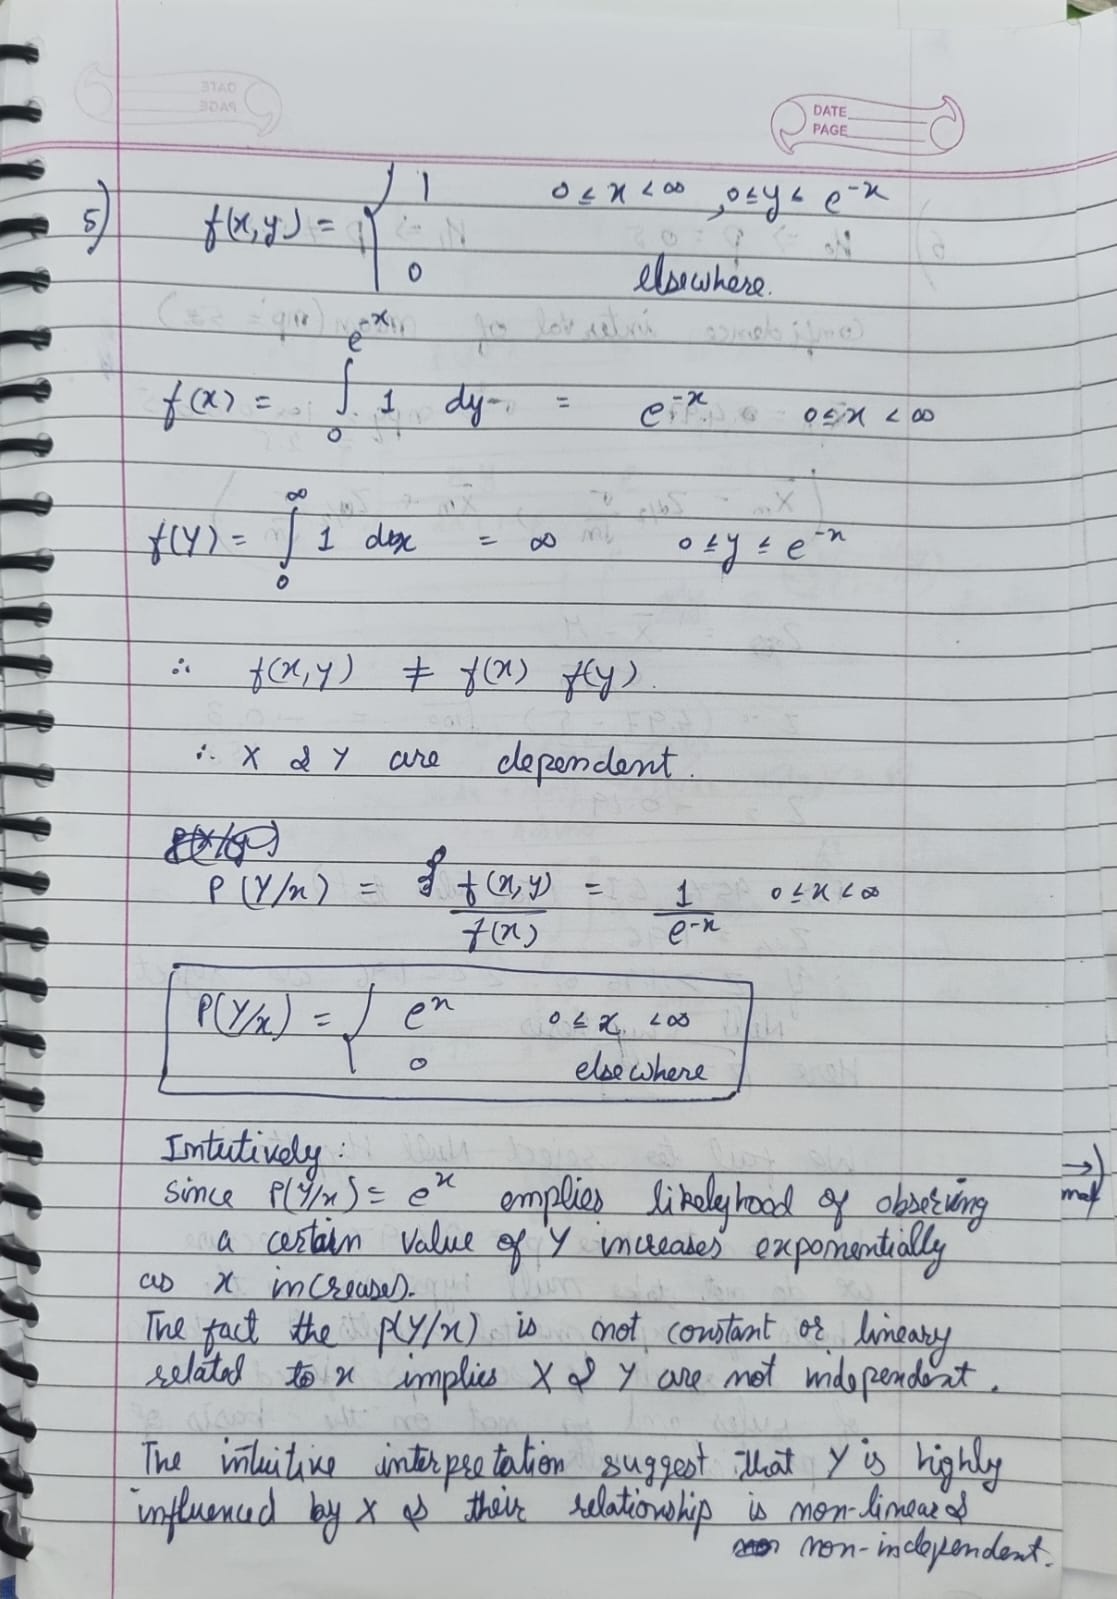 DATE
PAGE
5)
f(x,y) = { 1 0 ≤ x < ∞, 0 ≤ y ≤ e^-x
0 elsewhere.
f(x) = ∫_0^{e^-x} 1 dy = e^-x 0 ≤ x < ∞
f(Y) = ∫_0^∞ 1 dx = ∞ 0 ≤ y ≤ e^-x
∴ f(x,y) ≠ f(x) f(y).
∴ X & Y are dependent.
P(Y/x) = f(x,y)/f(x) = 1/e^-x 0 ≤ x < ∞
P(Y/x) = { e^x 0 ≤ x < ∞
0 elsewhere
Intutively :
since P(Y/x) = e^x emplies likelyhood of observing
a certain value of Y increases exponentially
as x increases.
The fact the P(Y/x) is not constant or lineary
related to x implies X & Y are not independent.
The intuitive interpretation suggest that Y is highly
influenced by X & their relationship is non-linear &
non-independent.